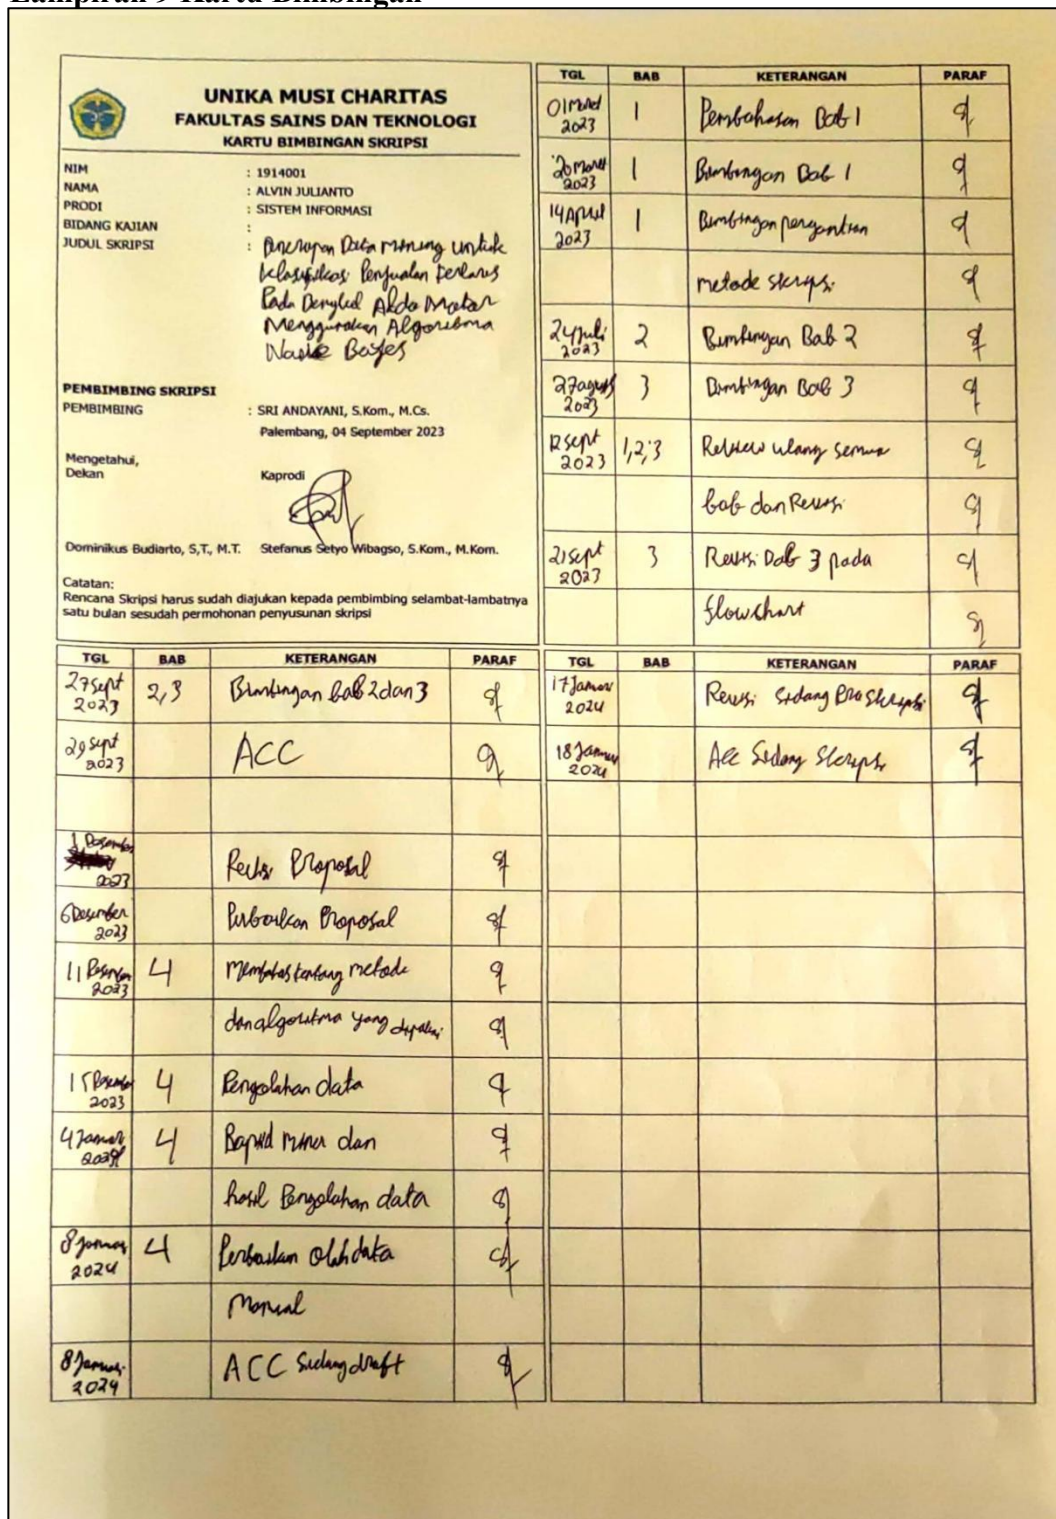 Lampiran 9 Kartu Bimbingan
UNIKA MUSI CHARITAS
FAKULTAS SAINS DAN TEKNOLOGI
KARTU BIMBINGAN SKRIPSI
NIM : 1914001
NAMA : ALVIN JULIANTO
PRODI : SISTEM INFORMASI
BIDANG KAJIAN :
JUDUL SKRIPSI : Penerapan Data Mining untuk
Klasifikasi Penjualan Terlaris
Pada Bengkel Aldo Motor
Menggunakan Algoritma
Naive Bayes
PEMBIMBING SKRIPSI
PEMBIMBING : SRI ANDAYANI, S.Kom., M.Cs.
Palembang, 04 September 2023
Mengetahui,
Dekan Kaprodi
Dominikus Budiarto, S,T., M.T. Stefanus Setyo Wibagso, S.Kom., M.Kom.
Catatan:
Rencana Skripsi harus sudah diajukan kepada pembimbing selambat-lambatnya
satu bulan sesudah permohonan penyusunan skripsi
TGL BAB KETERANGAN PARAF
01 Maret 2023 1 Pembahasan Bab 1
20 Maret 2023 1 Bimbingan Bab 1
14 April 2023 1 Bimbingan pergantian
metode skripsi
24 Juli 2023 2 Bimbingan Bab 2
27 agust 2023 3 Bimbingan Bab 3
12 sept 2023 1,2,3 Review ulang semua
bab dan Revisi
21 sept 2023 3 Revisi Bab 3 pada
flowchart
TGL BAB KETERANGAN PARAF
27 sept 2023 2,3 Bimbingan bab 2 dan 3
29 sept 2023 ACC
1 Desember 2023 Revisi Proposal
6 Desember 2023 Perbaikan Proposal
11 Desember 2023 4 Membahas tentang metode
dan algoritma yang dipakai
15 Desember 2023 4 Pengolahan data
4 Januari 2024 4 Rapid miner dan
hasil Pengolahan data
8 Januari 2024 4 Perbaikan Olah data
Manual
8 Januari 2024 ACC Sidang draft
TGL BAB KETERANGAN PARAF
17 Januari 2024 Revisi Sidang Pra Skripsi
18 Januari 2024 Acc Sidang Skripsi